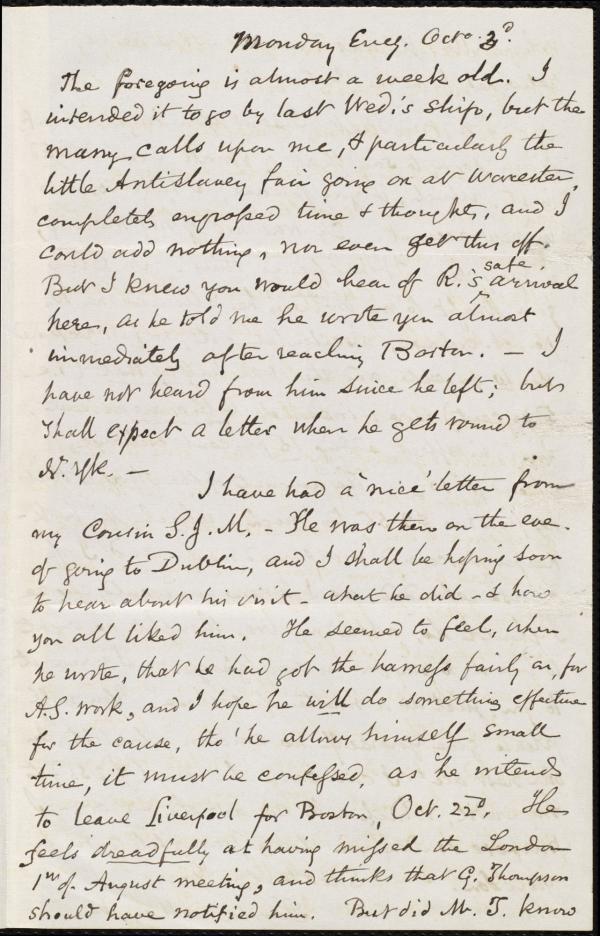 Monday Eveg. Octo. 3d.
The foregoing is almost a week old. I
intended it to go by last Wed.'s Ship, but the
many calls upon me, & particularly the
little Antislavery fair going on at Worcester,
completely engrossed time & thoughts, and I
could add nothing, nor even get this off.
But I knew you would hear of R.'s safe arrival
here, as he told me he wrote you almost
immediately after reaching Boston. – I
have not heard from him since he left; but
shall expect a letter when he gets round to
N. Yk. –
I have had a 'nice' letter from
my Cousin S. J. M. – He was then on the eve
of going to Dublin, and I shall be hoping soon
to hear about his visit – what he did – & how
you all liked him. He seemed to feel, when
he wrote, that he had got the harness fairly on, for
A.S. work, and I hope he will do something effective
for the cause, tho' he allows himself small
time, it must be confessed, as he intends
to leave Liverpool for Boston, Oct. 22d. He
feels dreadfully at having missed the London
1st of August meeting, and thinks that G. Thompson
should have notified him. But did Mr. T. know